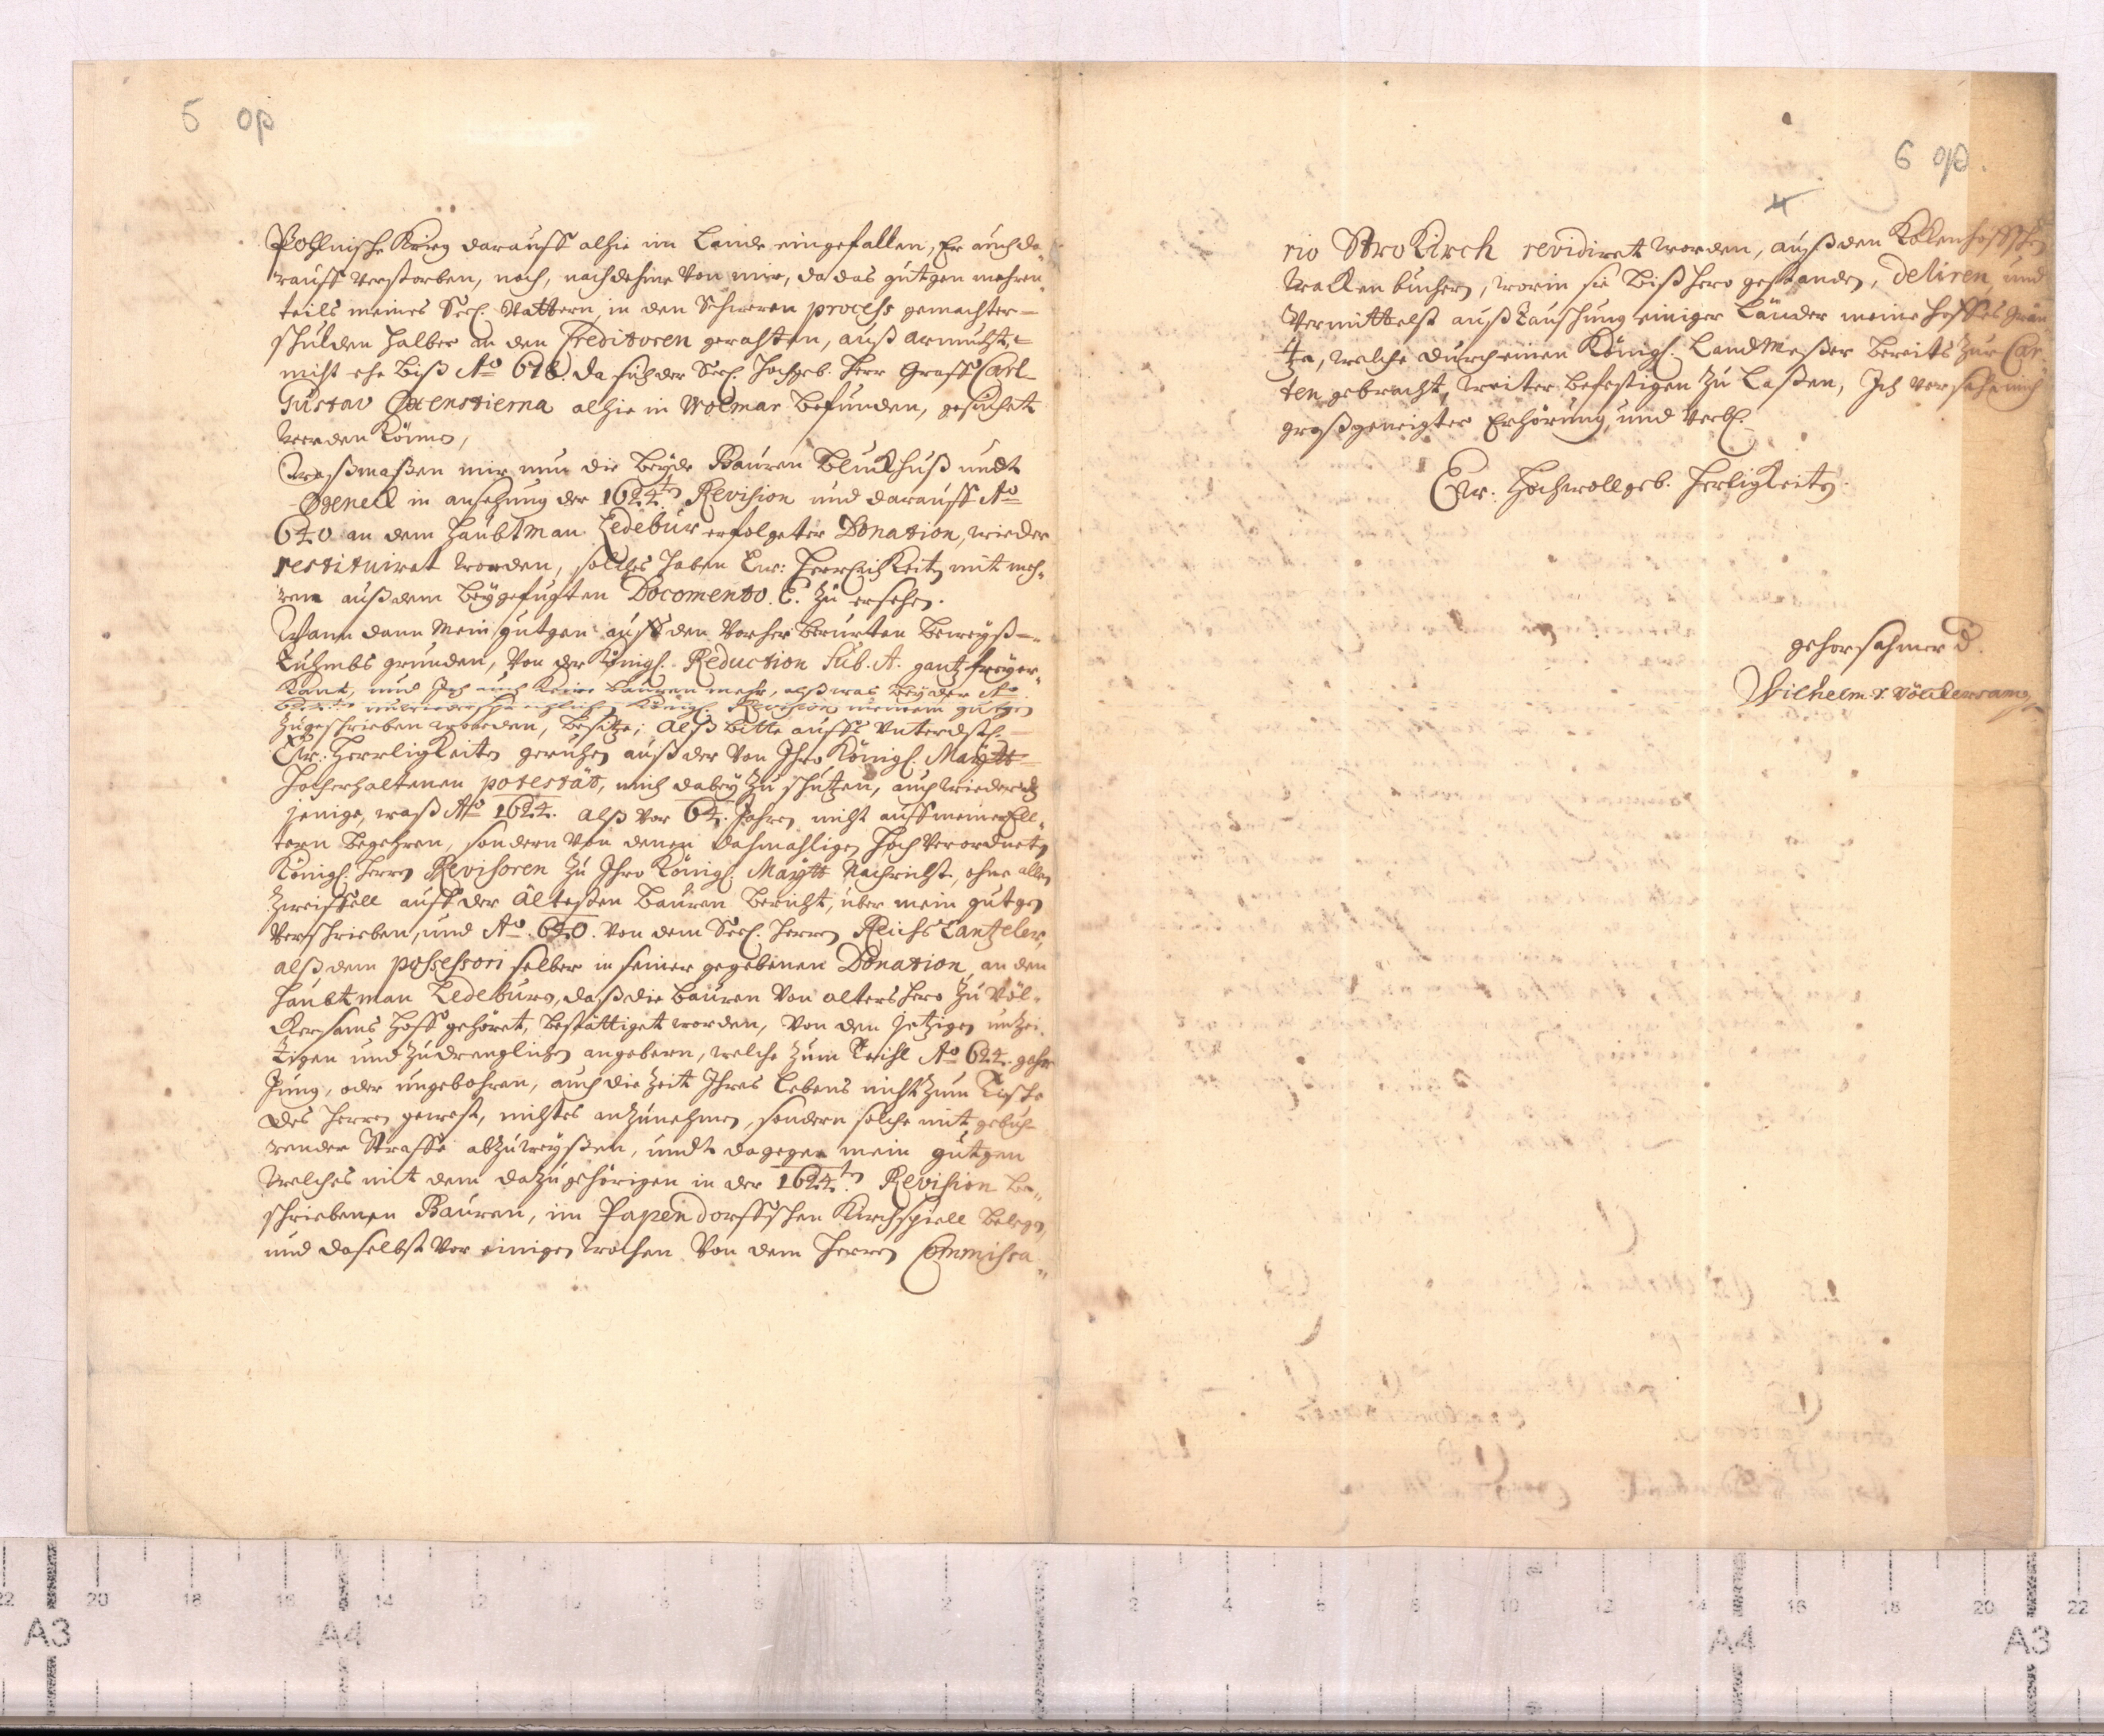 5 op
Pohlnische Krieg darauff alhie im Lande eingefallen, Er auch da-
rauff verstorben, noch, nachdehme von mir, da das gutgen mehren-
teils meines Seel. Vattern, in den Schweren process gemachter-
schulden halber an den Creditoren gerahten, auß armuht
nicht ehe biß Ao 676. da sich der Seel. hochgeb. Herr Graff Carl
Gustav Oxenstierna alhie in Wolmar befunden, gesuchet
werden können,
Waßmaßen mir nun die beyde Bauren Bluckhuß undt
Osenell in ansehung der 1624ten Revision und darauff Ao
640 an dem Haubtman Ledebur erfolgeter Donation, wieder
restituiret worden, solches haben Ew: Herrligkeiten mit meh-
rem auß dem beygefugten Documento. C. zu ersehen.
Wann dann Mein gutgen auff den vorher berurten beweyß-
tuhmbs grunden, von der Königl. Reduction Sub. A. gantz frey er-
kant, und Ich auch keine bauren mehr, alß was bey der Ao
Königl. Revision meinem gutgen
zugeschrieben worden, besitze; Alß bitte auffs Unterdstl.
Ew: Herrligkeiten geruhen auß der von Ihro Königl. Maytt
hoherhaltenen potestät, mich dabey zu schutzen, auch wieder das
jenige, waß Ao 1624. alß vor 64. Jahren nicht auff meiner Ell-
tern begehren, sondern von denen dahmahligen hoch verordneten
Königl. Herren Revisoren zu Ihro Königl. Maytt Nachricht, ohne allen
zweiffell auff der Eltesten bauren bericht, uber mein gutgen
verschrieben, und Ao 640. von dem Seel. Herren Reichs Cantzeler,
alß dem possessori selber in seiner gegebenen Donation an den
Haubtman Ledeburg, daß die bauren von alters hero zu Völ-
kersams hoff gehöret, bestättiget worden, von den jetzigen unzei-
tigen und zudrenglichen angebern, welche zum theihl Ao 624. gahr
Jung, oder ungebohren, auch die Zeit Ihres Lebens nicht zum Tische
des Herren gewest, nichtes anzunehmen, sondern solche mit gebuh-
render Straffe abzuweysen, undt dagegen mein gutgen
welches mit dem dazu gehörigen in der 1624ten Revision be-
schriebenen Bauren, im Papendorffschen Kirchspiell belegen,
und daselbst vor einigen wochen von dem Herren Commissa-
6 op.
4
rio Strokirch revidiret worden, auß den Kokenhoffschen
Wakenbuchern, worin sie bißhero gestanden, deliren, und
Vermittelst außtauschung einiger Länder meine hoffes Grän-
tze, welche durch einen Königl. Landmeßer bereits zur Car-
ten gebracht, weiter befestigen zu laßen, Ich versehe mich
großgeneigter Erhörung, und verbl.
Ew. Hochwollgeb. Herligkeiten
gehorsahmer D.
Wilhelm v. Völckersamb